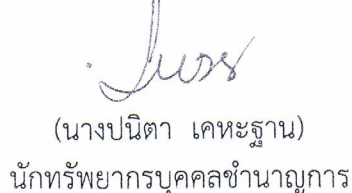 (นางปนิตา เคหะฐาน)
นักทรัพยากรบุคคลชำนาญการ